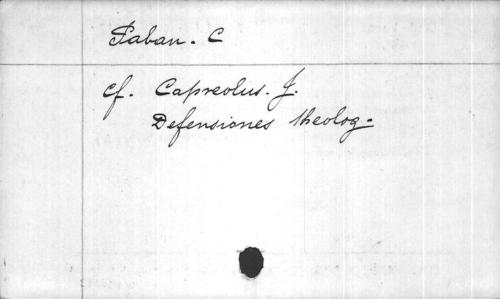 Paban. C
cf. Capreolus. J.
Defensiones theolog.